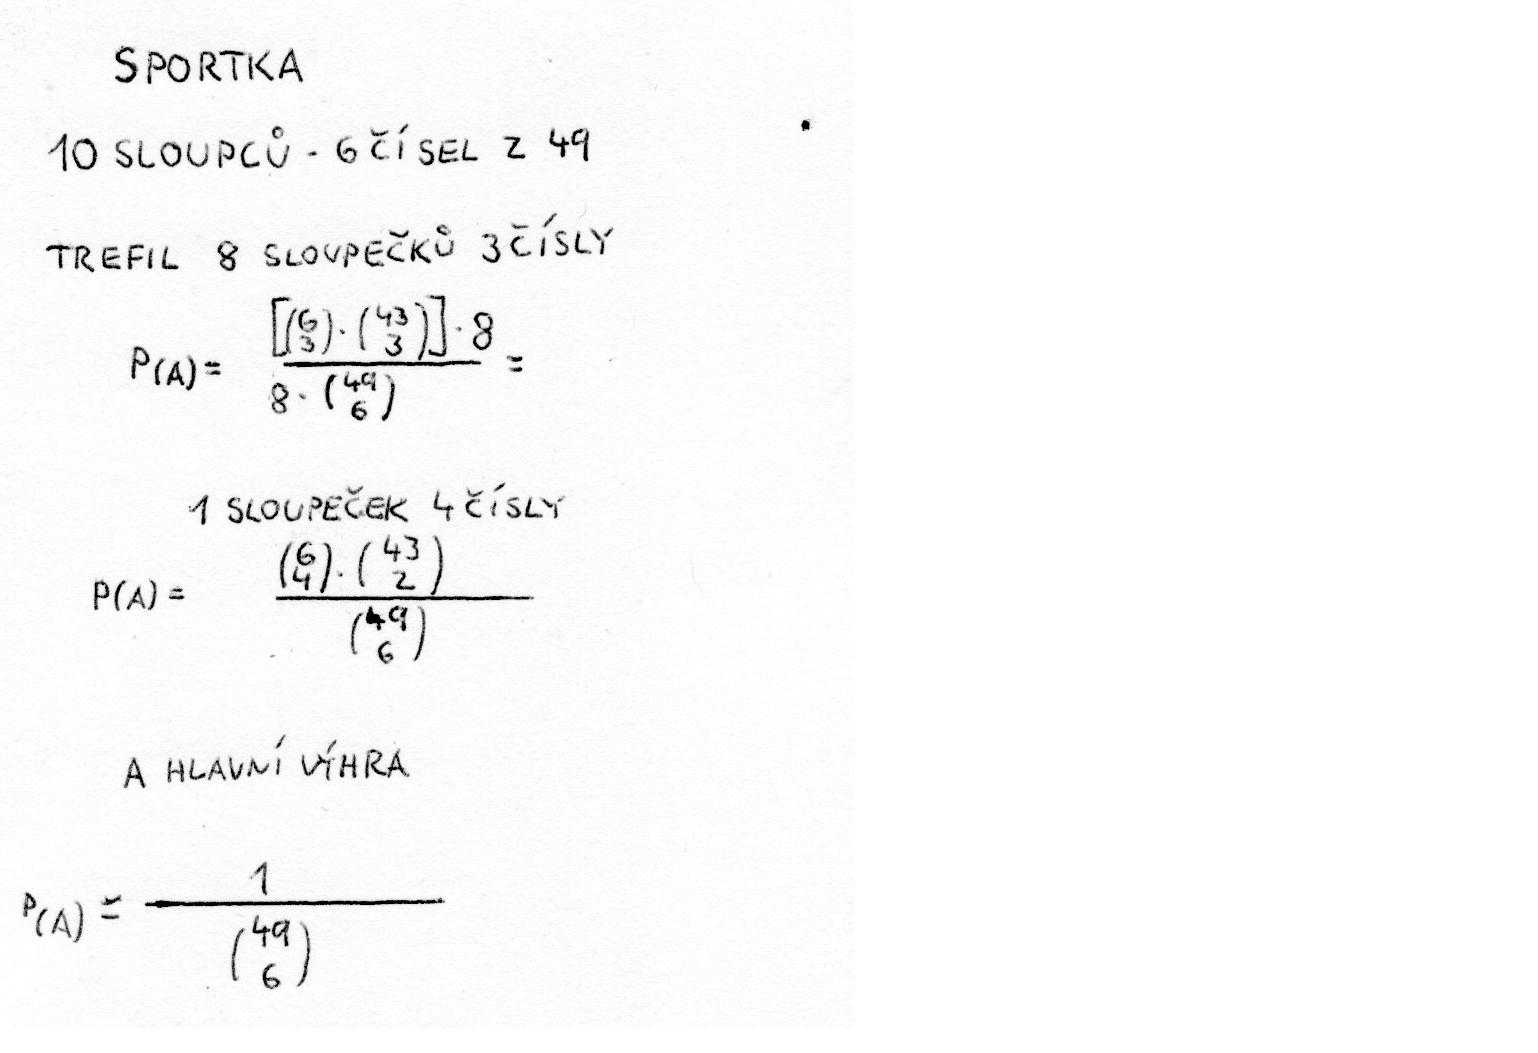 SPORTKA
10 SLOUPCŮ - 6 ČÍSEL Z 49
TREFIL 8 SLOUPEČKŮ 3 ČÍSLY
P(A) = [(6 3) · (43 3)] · 8 / 8 · (49 6) =
1 SLOUPEČEK 4 ČÍSLY
P(A) = (6 4) · (43 2) / (49 6)
A HLAVNÍ VÝHRA
P(A) = 1 / (49 6)